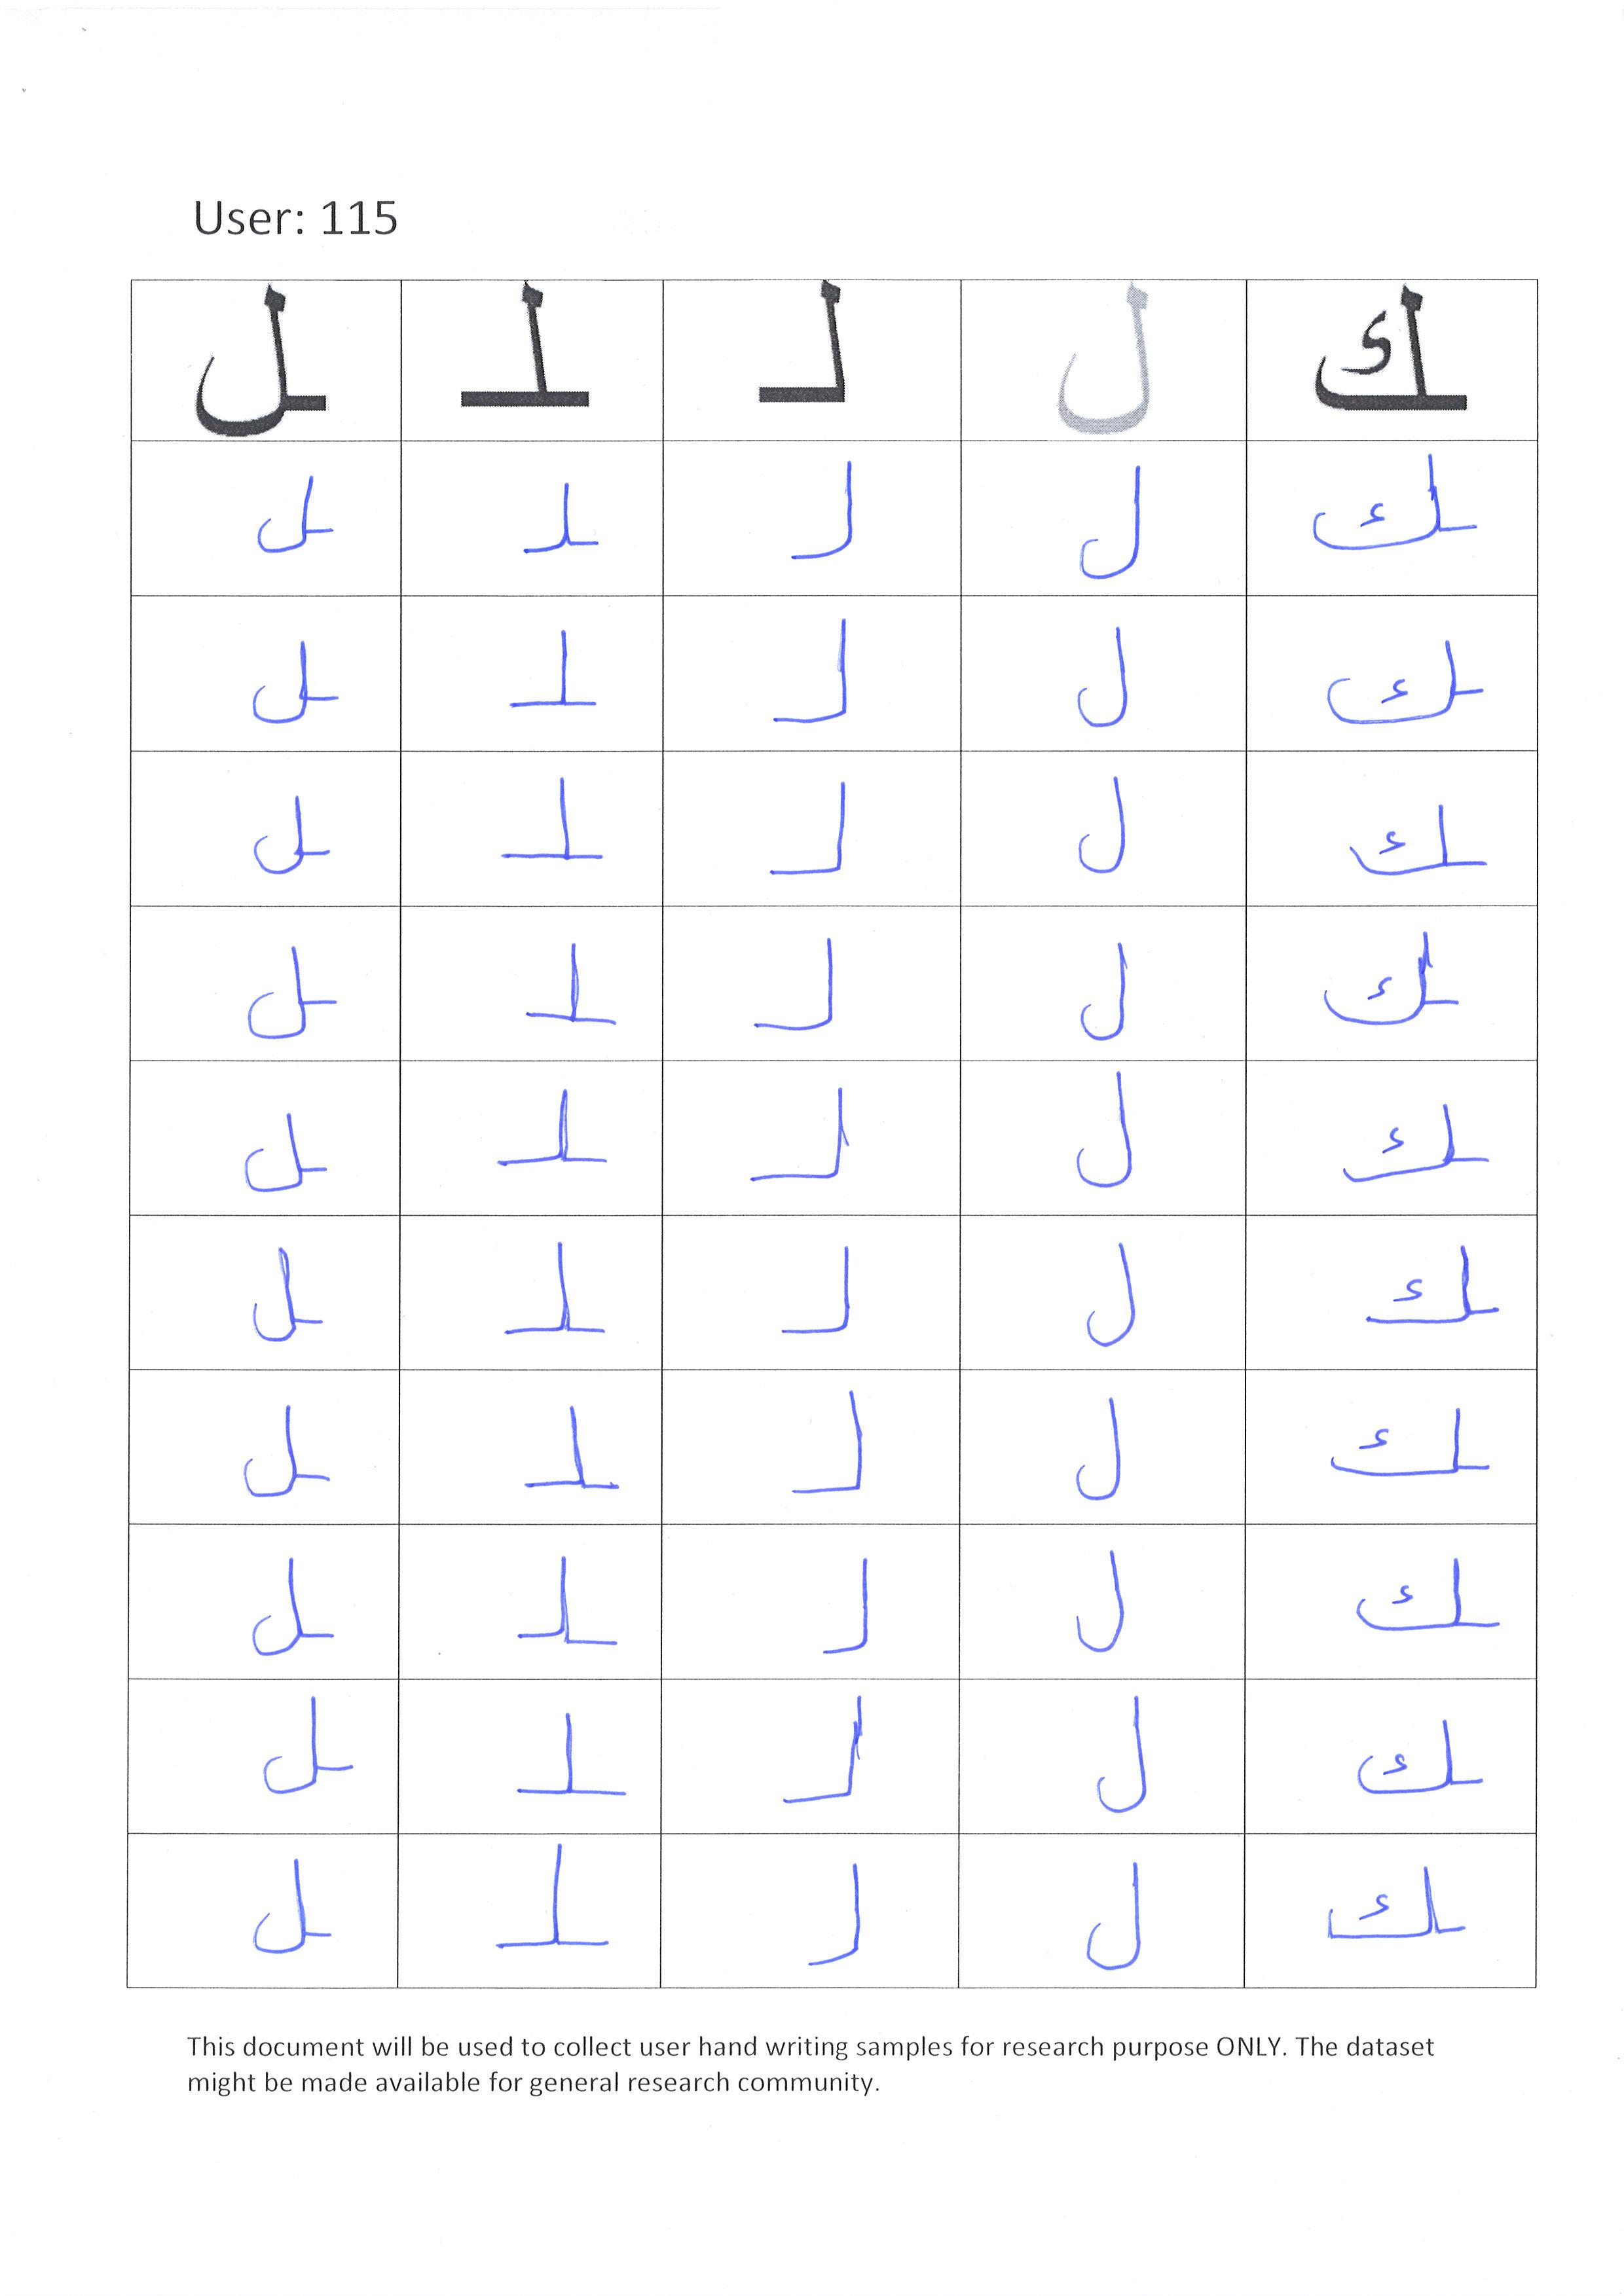 User: 115
ك ل لـ ـلـ ـل
ـك ل لـ ـلـ ـل
ـك ل لـ ـلـ ـل
ـك ل لـ ـلـ ـل
ـك ل لـ ـلـ ـل
ـك ل لـ ـلـ ـل
ـك ل لـ ـلـ ـل
ـك ل لـ ـلـ ـل
ـك ل لـ ـلـ ـل
ـك ل لـ ـلـ ـل
ـك ل لـ ـلـ ـل
This document will be used to collect user hand writing samples for research purpose ONLY. The dataset
might be made available for general research community.